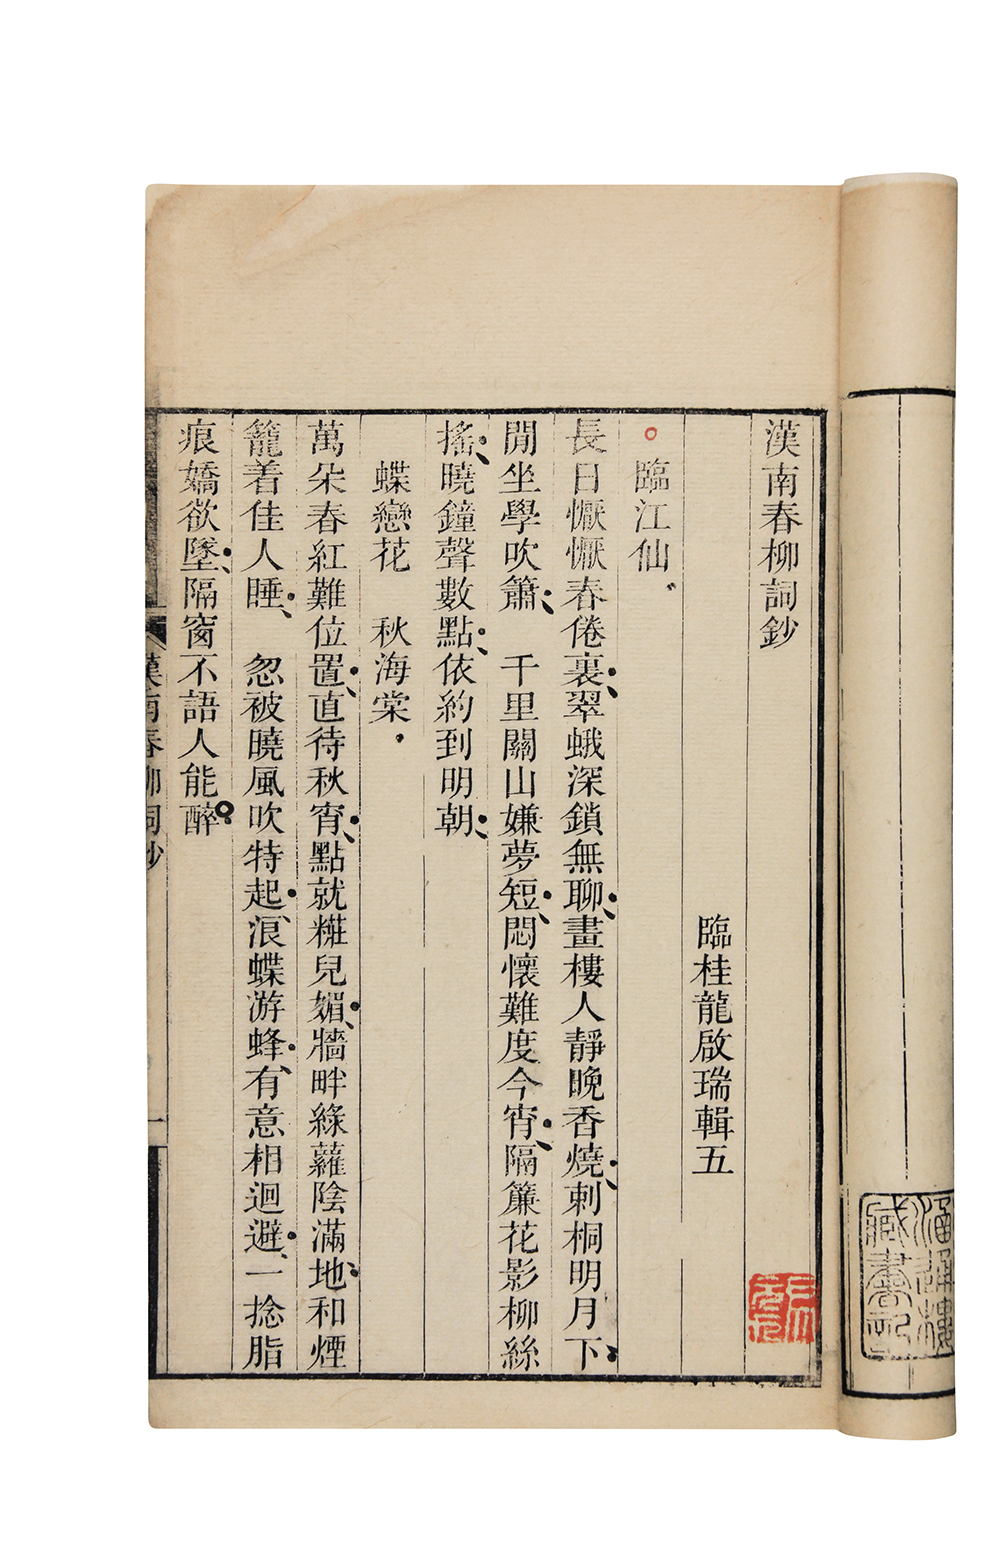 漢南春柳詞鈔
臨桂龍啟瑞輯五
臨江仙
長日懨懨春倦裏翠蛾深鎖無聊畫樓人靜晚香燒刺桐明月下
閒坐學吹簫　千里關山嫌夢短悶懷難度今宵隔簾花影柳絲
搖曉鐘聲數點依約到明朝
蝶戀花　秋海棠
萬朵春紅難位置直待秋宵點就糚兒媚牆畔綠蘿陰滿地和煙
籠着佳人睡　忽被曉風吹特起浪蝶游蜂有意相迴避一捻脂
痕嬌欲墜隔窗不語人能醉
漢南春柳詞鈔
一
藏書記